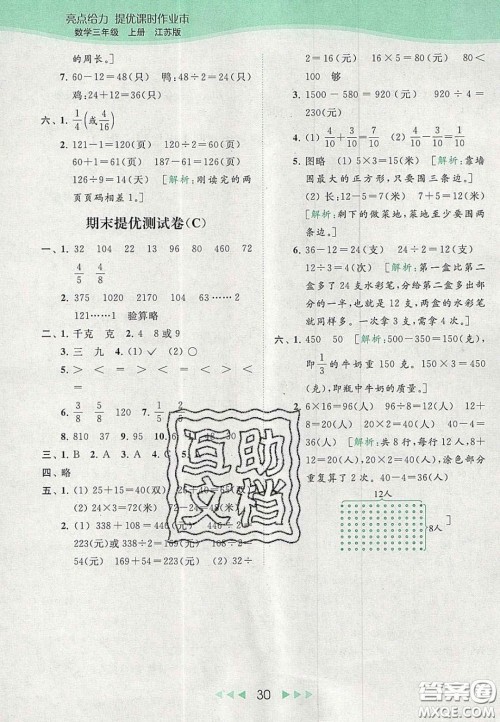 亮点给力 提优课时作业本
数学三年级 上册 江苏版
的周长。]
7. 60-12=48(只) 48÷2=24(只)
鸡:24+12=36(只)
六、1. 1/4(或4/16)
2. 121-1=120(页) 120÷2=60(页)
60+1=61(页) 187-61=126(页)
126÷2=63(页) [解析:刚读完的两
页页码相差1。]
期末提优测试卷(C)
一、1. 32 104 22 13 92 460 72
4/5 4/8
2. 375 121 104 63……2
121……1 验算略
二、1. 千克 克 2. 4 8或9
3. 三 九 4. (1) ✓ (2) ○
5. > < = > < =
6. 3/5 5/8 120
8. 810 37 9. 45
三、1. B 2. A 3. B 4.
四、略
五、1. (1) 25+15=40(元)
(2) 24×3=72(元)
2. (1) 108×2=
223(元)或338÷
54(元) 169+54=223(元) (2) 32÷
8=4(元) 4×23=92(元) 92<100
100 够
3. 1500-580=920(克) 920÷4=
230(克)
4. (1) 4/10+3/10=7/10 (2) 4/10-3/10=1/10
5. 图略 (1) 5×3=15(米) [解析:靠墙
围最大的正方形,只要围三条边。]
(2) 长:12-5=7(米) 7+5=12
(米) [解析:剩下的做菜地,菜地至少要围两
条边。]
6. 36-12=24(支) 24÷2=12(支)
12÷3=4(次) [解析:第一盒比第二
盒多了24支水彩笔,分给第二盒12支
水彩笔就是一半,这时,两盒的水彩笔
就同样多。一次拿3支,需要拿4次。]
六、1. 50 50 [解析:500-350=150(克),
即1/3的牛奶重150克,350-150×2=50
(克),即瓶中牛奶的质量。]
2. 6×16=96(人) 96÷8=12(人)
12+8=20(人) 20×2=40(人)
40-4=36(人) [解析:共8行,每行12
人。12+8=20(人),20×2=40(人),涂色部分
重复算了2次。40-4=36(人)
12人
8人
]
互助
文档
30
答案圈
MXQE.COM